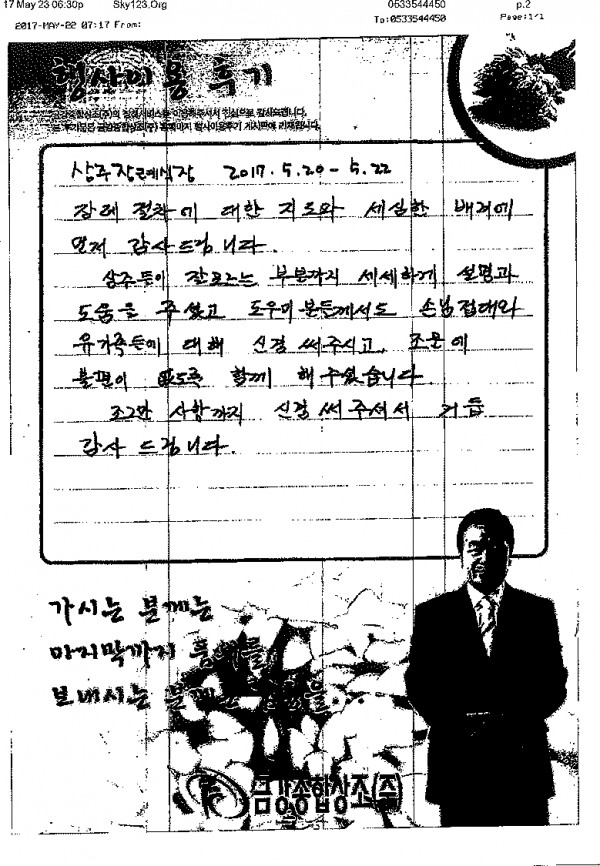 17 May 23 06:30p Sky123.Org 0533544450 p.2
2017-MAY-22 07:17 From: To:0533544450 Page:1/1
행사이용후기
상주장례식장 2017.5.20-5.22
장례 절차에 대한 지도와 세심한 배려에
먼저 감사드립니다.
상주들이 잘모르는 부분까지 세세하게 설명과
도움을 주셨고 도우미분들께서도 손님접대와
유가족들에 대해 신경써주시고, 조문에
불편이 없도록 함께 해주셨습니다.
조그만 사항까지 신경써주셔서 거듭
감사드립니다.
가시는 분께는
마지막까지
보내시는 분께는
금강종합상조(주)